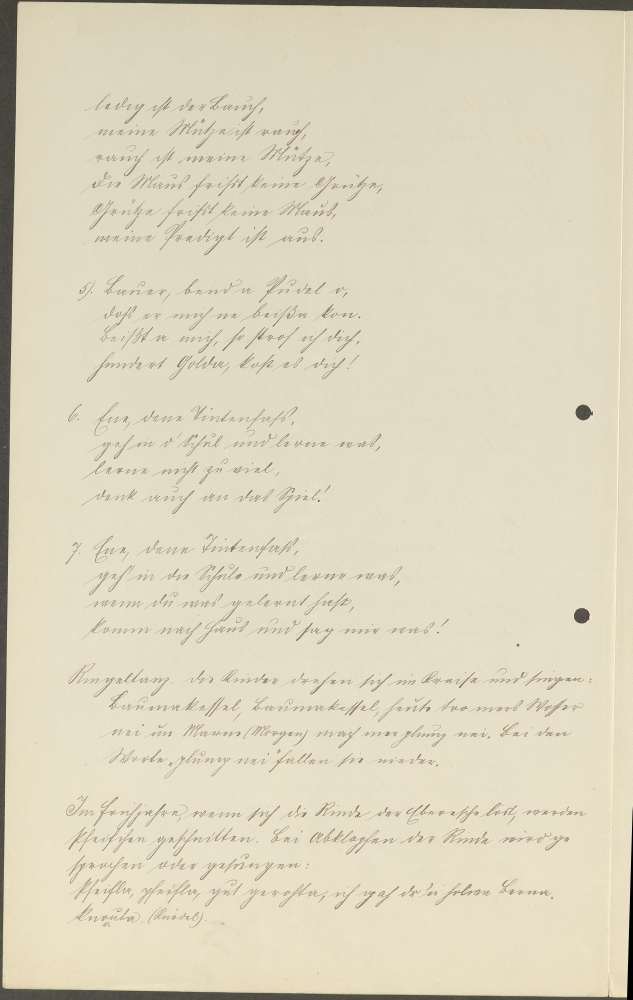 ledig ist der Bauch,
meine Mütze ist rauch,
rauch ist meine Mütze,
die Maus frißt keine Grütze,
Grütze frißt keine Maus,
meine Predigt ist aus.
5). Bauer, bend a Pudel o,
doß er mich ne beißa kon.
Beißt a mich, so strof ich dich,
hundert Golda, kost es dich!
6. Ene, dene Tintenfaß,
geh in d' Schul und lerne was,
lerne nicht zu viel,
denk auch an das Spiel!
7. Ene, dene Tintenfaß,
geh' in die Schule und lerne was,
wenn du was gelernt hast,
komm nach Haus und sag mir was!
Ringeltanz. Die Kinder drehen sich im Kreise und singen:
Baumakessel, Baumakessel, heute tro mers Wosser
nei un Marne (Morgen) mach mer plung nei. Bei den
Worte "plung nei" fallen sie nieder.
Im Frühjahre, wenn sich die Rinde der Eberesche löst, werden
Pfeifchen geschnitten. Bei Abklopfen der Rinde wird ge
sprochen oder gesungen:
Pfeifla, pfeifla, gut gerohta, ich gah dr 'n holwa
(Knödel).